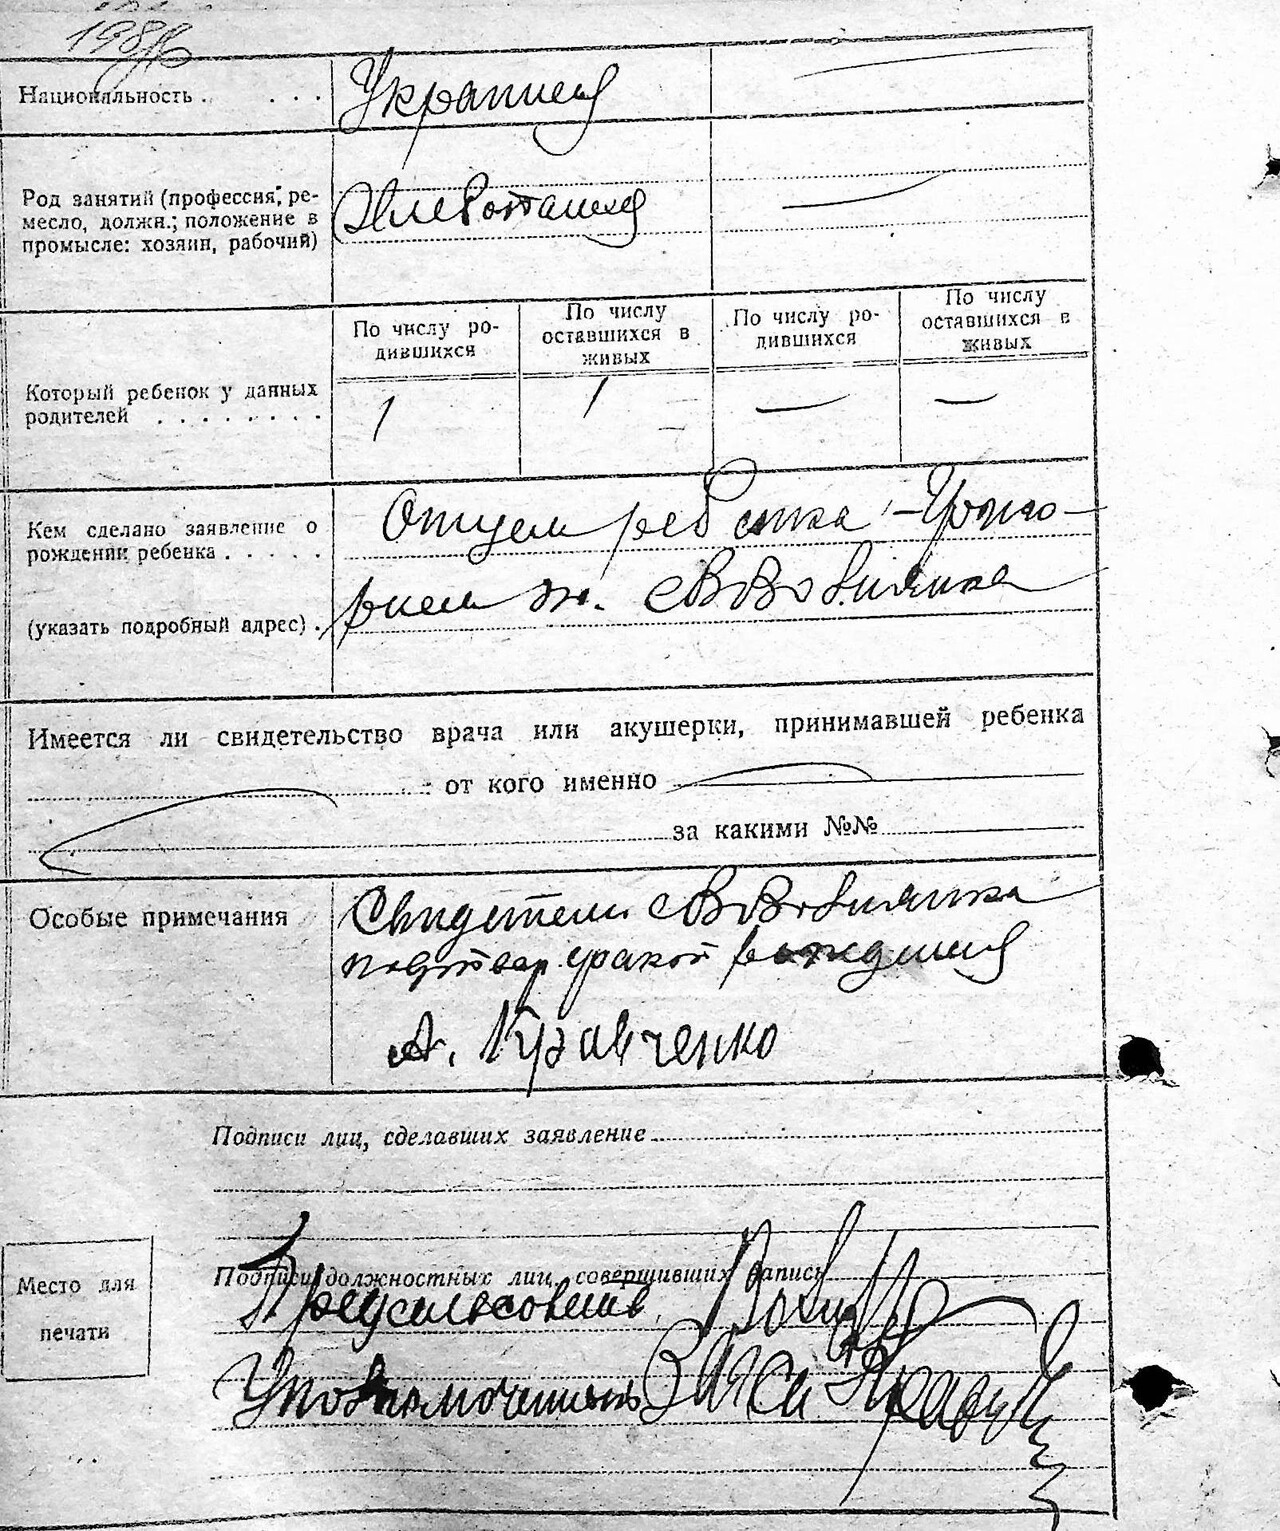 Национальность . . . . Украинец
Род занятий (профессия, ре-
месло, должн.; положение в
промысле: хозяин, рабочий)
По числу ро-
дившихся
По числу
оставшихся в
живых
По числу ро-
дившихся
По числу
оставшихся в
живых
Который ребенок у данных
родителей . . . . . . . .
1 1 — —
Кем сделано заявление о
рождении ребенка . . . . .
Отцем ребенка - Григо-
рием
(указать подробный адрес) .
Имеется ли свидетельство врача или акушерки, принимавшей ребенка
от кого именно
за какими №№
Особые примечания
Свидетели
рождения
А. Кравченко
Подписи лиц, сделавших заявление
Подписи должностных лиц, совершивших запись
Место для
печати
Предсельсовета
Уполномоченный ЗАГСа